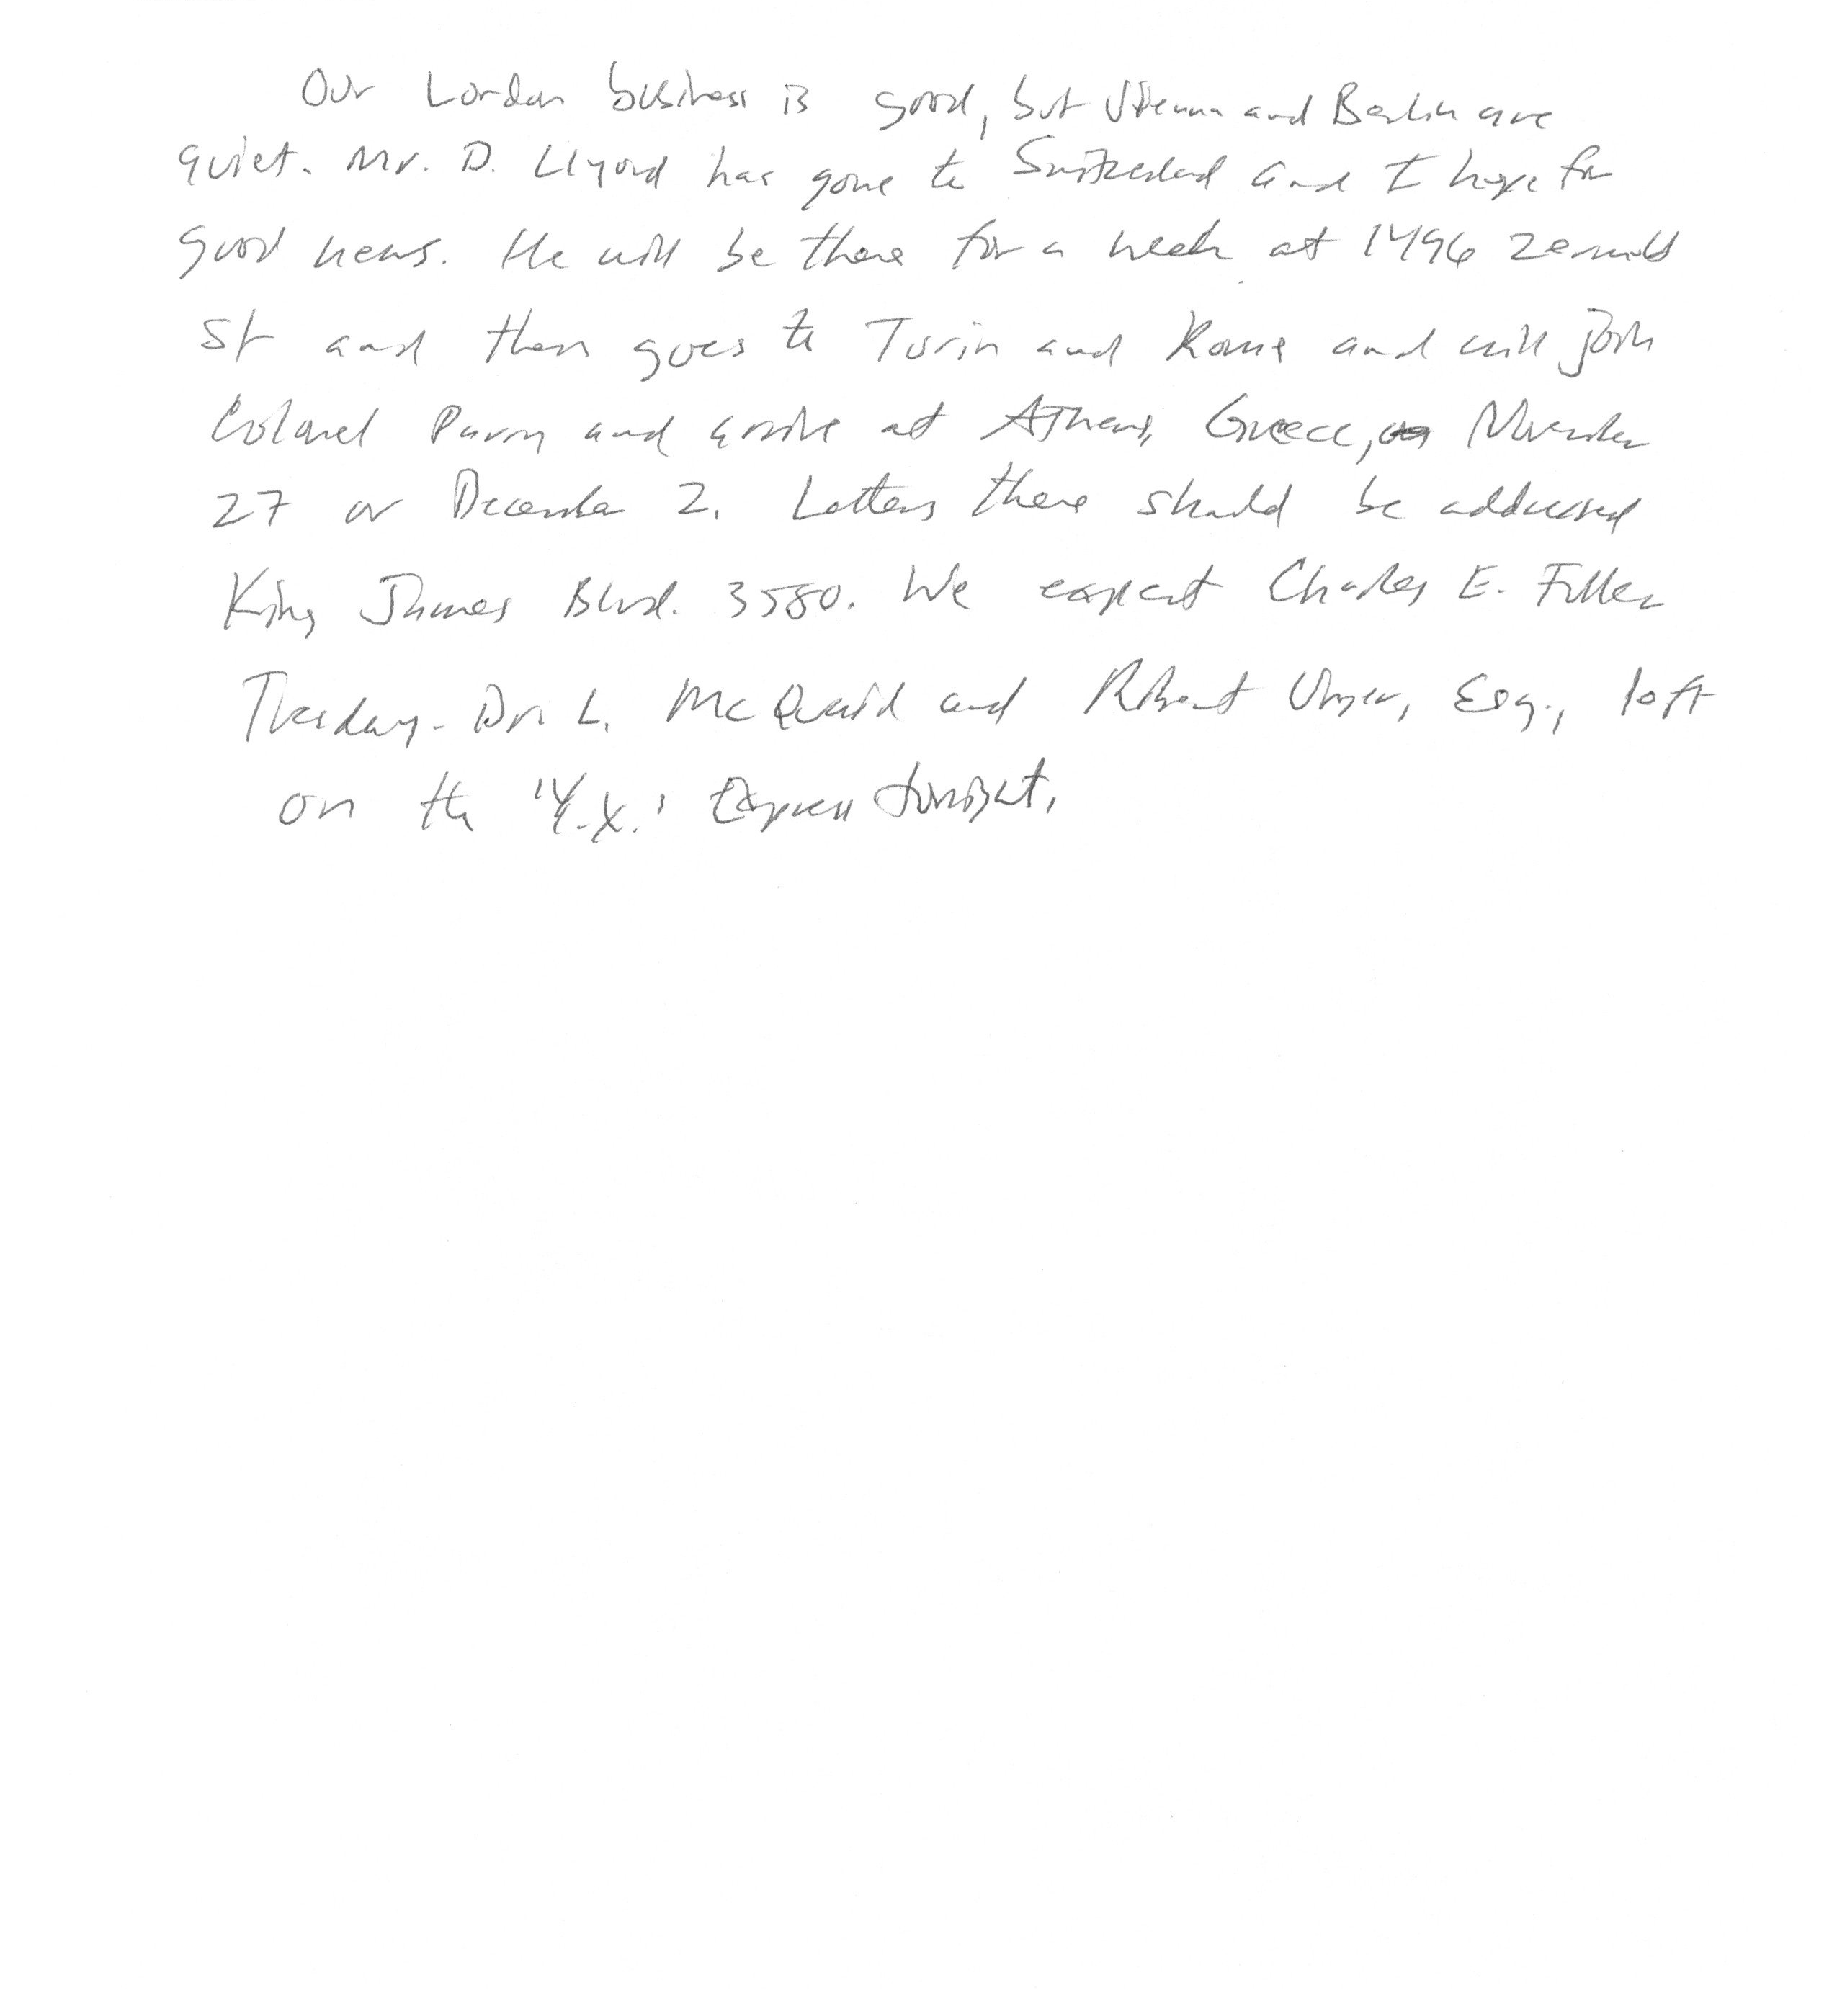 Our London business is good, but Vienna and Berlin are
quiet. Mr. D. Llyord has gone to Switzerland and I hope for
good news. He will be there for a week at 1496 Zermott
St and then goes to Turin and Rome and will join
Colonel Parry and arrive at Athens, Greece, November
27 or December 2. Letters there should be addressed
King James Blvd. 3580. We expect Charles E. Fuller
Tuesday. Dr. L. McQuaid and Robert Unger, Esq., left
on the 'Y.X.' Express tonight.